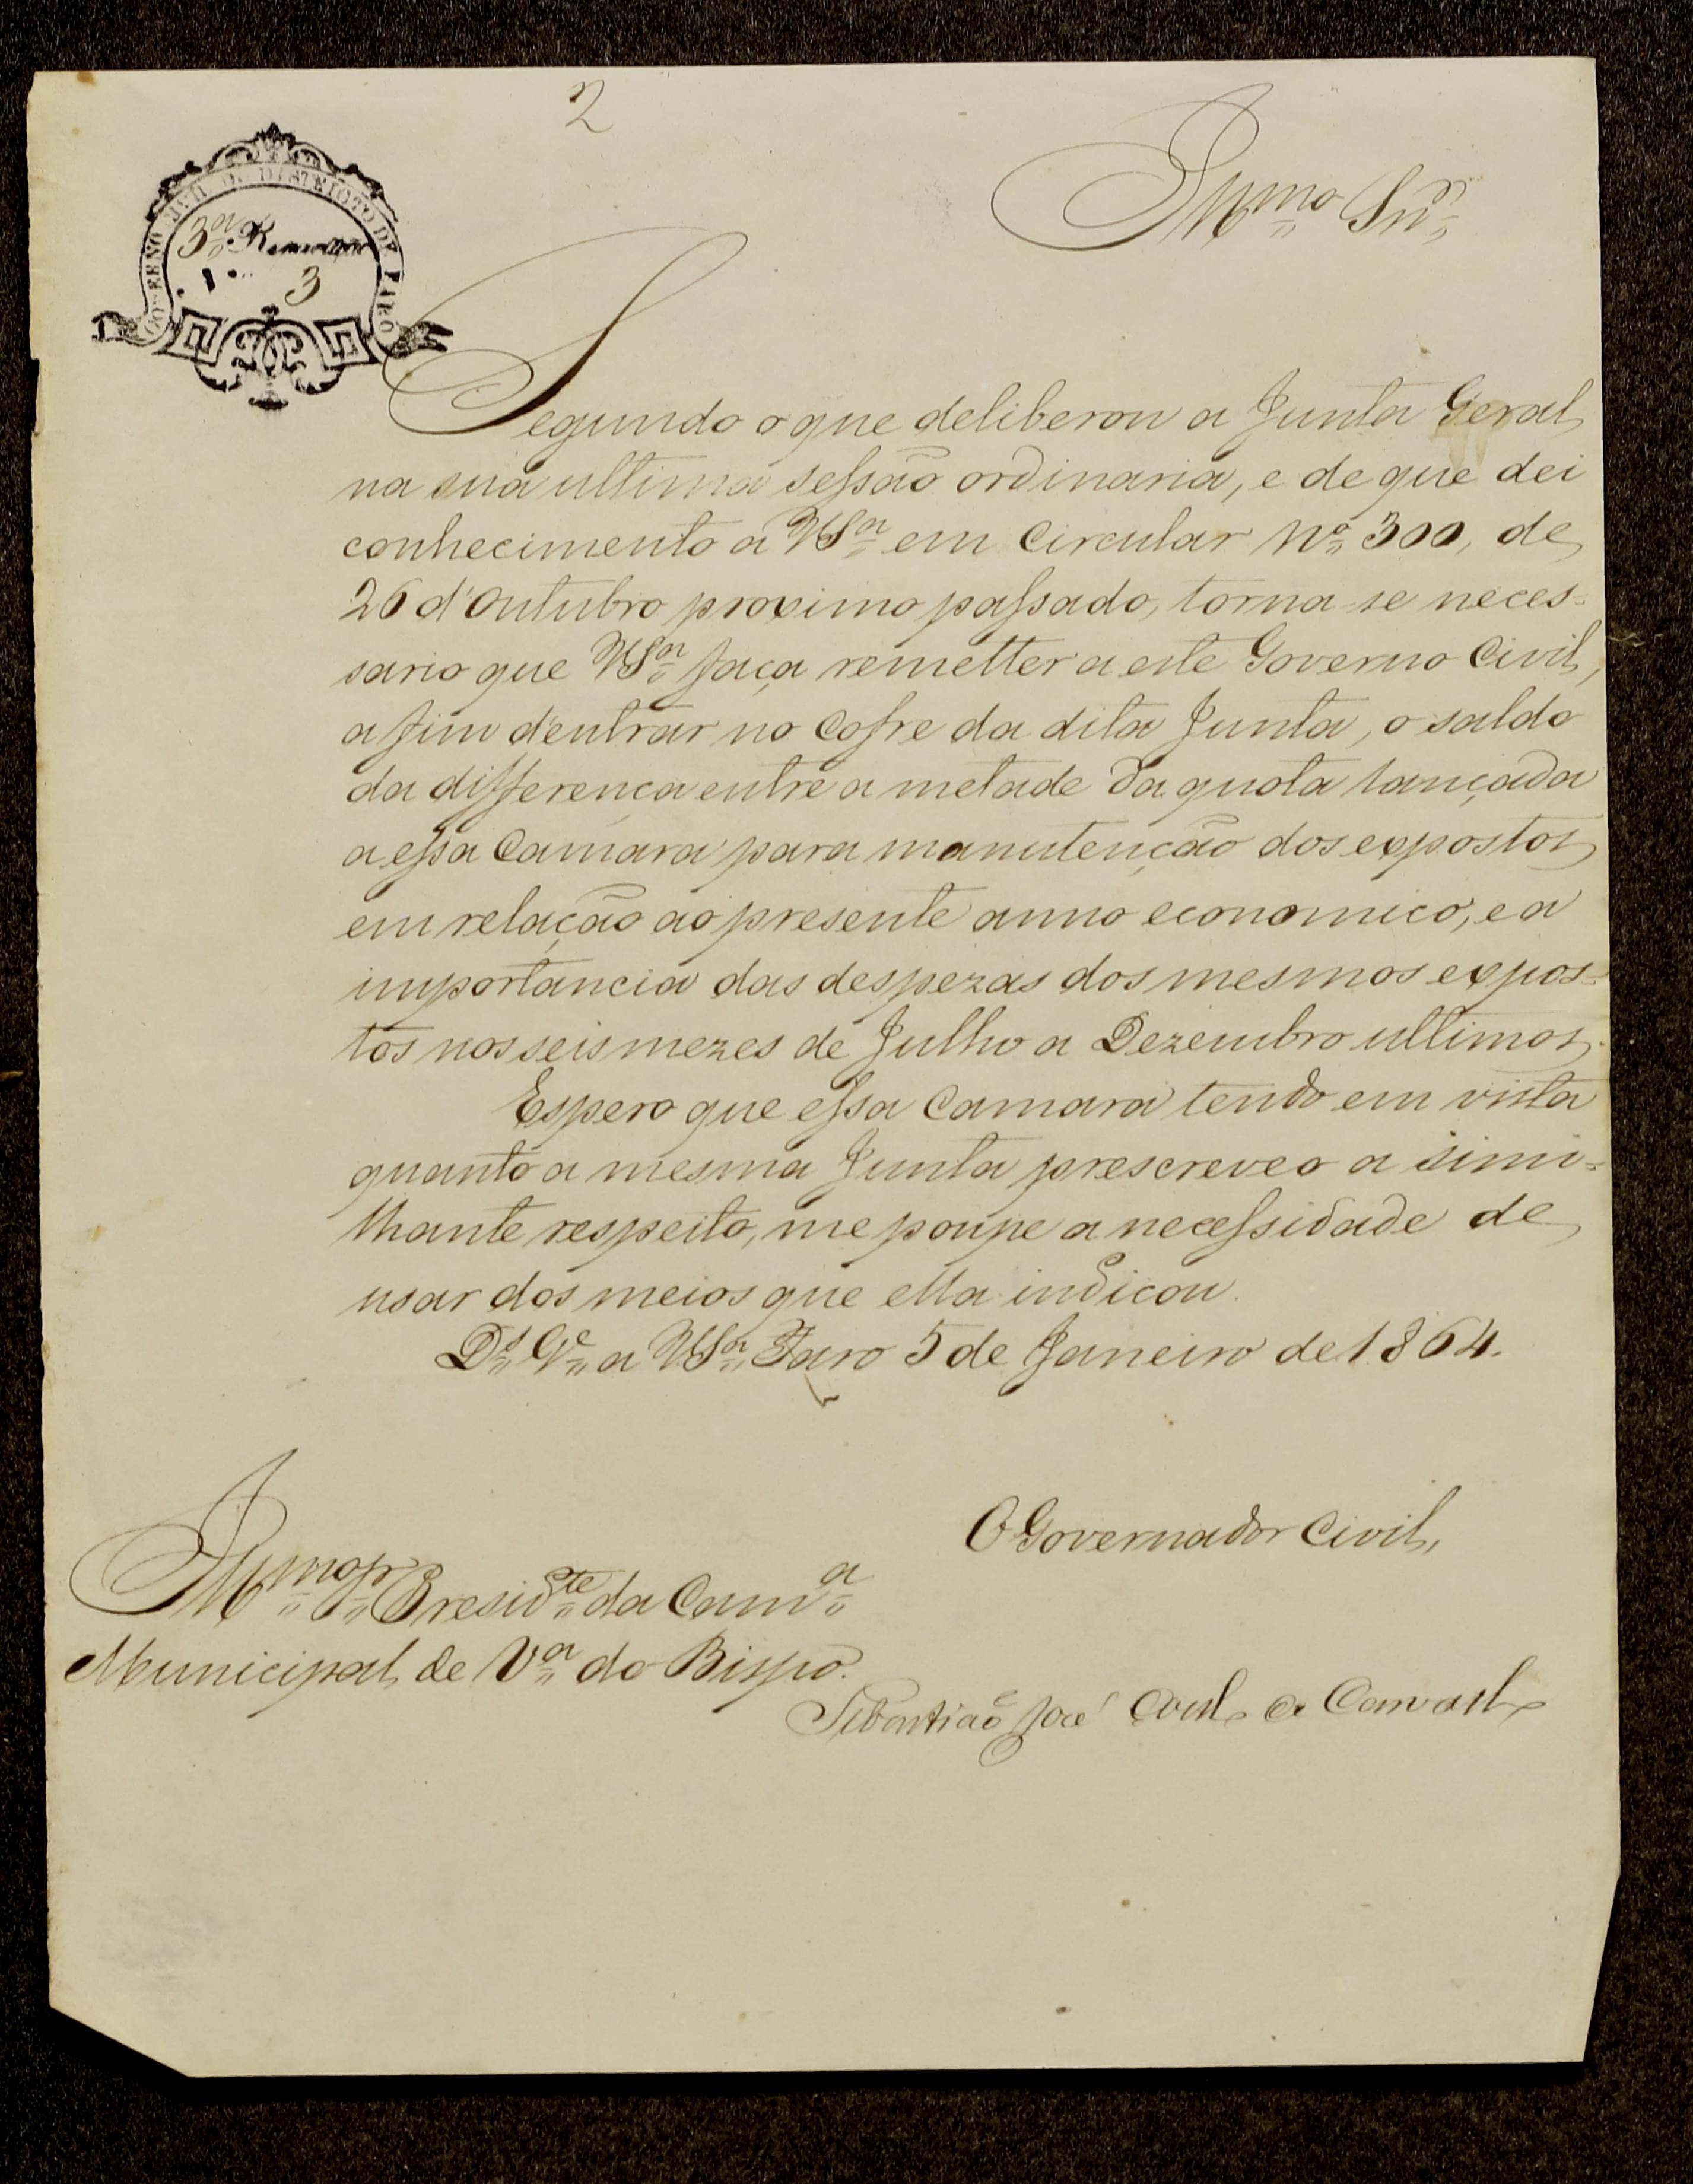 2
GOVERNO CIVIL DO DISTRICTO DE FARO
3ª
3
Illmo Snr
Segundo o que deliberou a Junta Geral
na sua ultima sessão ordinaria, e de que dei
conhecimento a VSª em Circular Nº 300, de
26 d'Outubro proximo passado, torna-se neces=
sario que VSª faça remetter a este Governo Civil,
a fim d'entrar no Cofre da dita Junta, o saldo
da differença entre a metade da quota lançada
a essa Camara para manutenção dos expostos
em relação ao presente anno economico, e a
importancia das despezas dos mesmos expos=
tos nos seis mezes de Julho a Dezembro ultimos.
Espero que essa Camara tendo em vista
quanto a mesma Junta prescreveo a simi=
lhante respeito, me poupe a necessidade de
usar dos meios que ella indicou.
Ds Ge a VSª Faro 5 de Janeiro de 1864.
O Governador Civil,
Illmo Sr Presidte da Camª
Municipal de Vª do Bispo.
Sebastião José